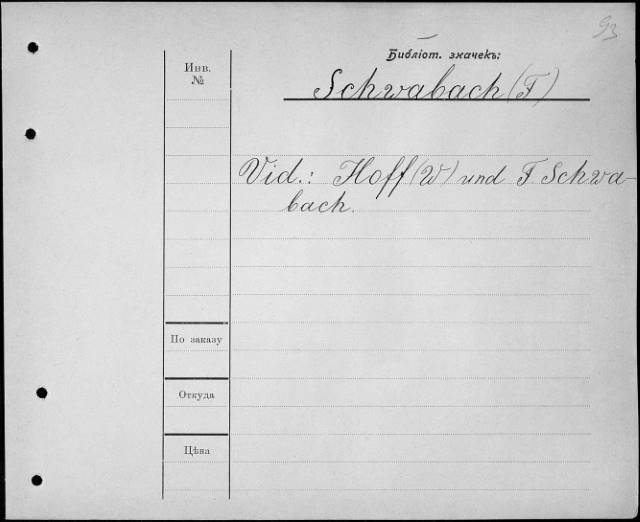 93
Библіот. значекъ:
Инв.
№
Schwabach (F)
Vid.: Hoff (W) und F. Schwa-
bach.
По заказу
Откуда
Цѣна